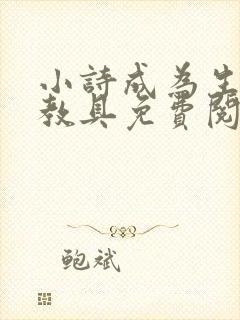 小詩成為生
教具免費閱
鲍斌